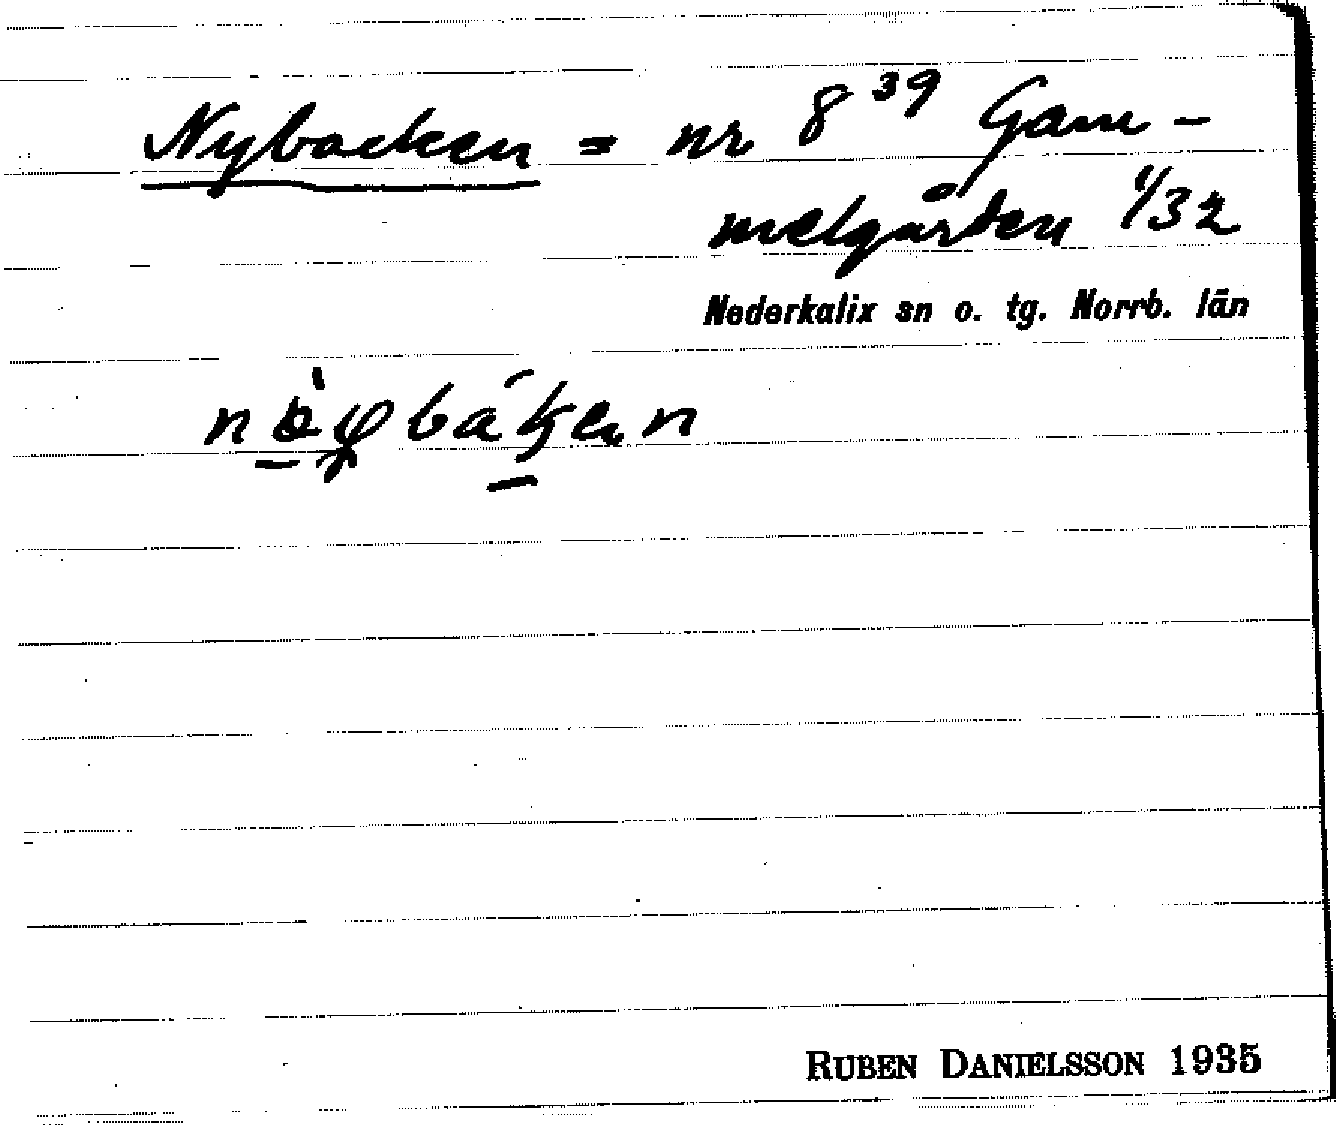 Nybacken = nr 8³⁹ Gam-
melgården 1/32
Nederkalix sn o. tg. Norrb. län
RUBEN DANIELSSON 1935